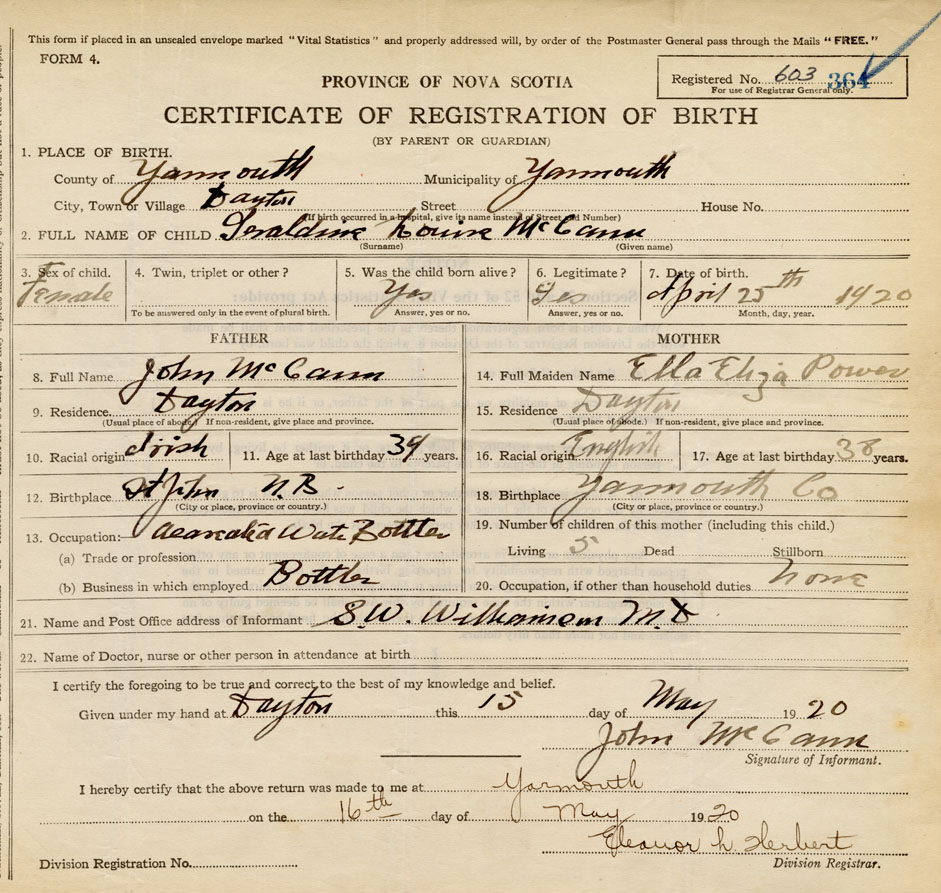 This form if placed in an unsealed envelope marked "Vital Statistics" and properly addressed will, by order of the Postmaster General pass through the Mails "FREE."
FORM 4.
PROVINCE OF NOVA SCOTIA
Registered No. 603 364
For use of Registrar General only.
CERTIFICATE OF REGISTRATION OF BIRTH
(BY PARENT OR GUARDIAN)
1. PLACE OF BIRTH.
County of Yarmouth Municipality of Yarmouth
City, Town or Village Dayton Street House No.
(If birth occurred in a hospital, give its name instead of Street and Number)
2. FULL NAME OF CHILD Geraldine Louise McCann
(Surname) (Given name)
3. Sex of child. 4. Twin, triplet or other? 5. Was the child born alive? 6. Legitimate? 7. Date of birth.
Female Yes Yes April 25th 1920
To be answered only in the event of plural birth. Answer, yes or no. Answer, yes or no. Month, day, year.
FATHER MOTHER
8. Full Name John McCann 14. Full Maiden Name Ella Eliza Power
9. Residence. Dayton 15. Residence Dayton
(Usual place of abode.) If non-resident, give place and province. (Usual place of abode.) If non-resident, give place and province.
10. Racial origin Irish 11. Age at last birthday 39 years. 16. Racial origin English 17. Age at last birthday 38 years.
12. Birthplace St John N.B. 18. Birthplace Yarmouth Co
(City or place, province or country.) (City or place, province or country.)
13. Occupation: Bottler 19. Number of children of this mother (including this child.)
(a) Trade or profession Living 5 Dead Stillborn
(b) Business in which employed Bottler 20. Occupation, if other than household duties. none
21. Name and Post Office address of Informant S.W. Williamson M.D
22. Name of Doctor, nurse or other person in attendance at birth
I certify the foregoing to be true and correct to the best of my knowledge and belief.
Given under my hand at Dayton this 15 day of May 1920
John McCann
Signature of Informant.
I hereby certify that the above return was made to me at Yarmouth
on the 16th day of May 1920
Eleanor L. Herbert
Division Registration No. Division Registrar.